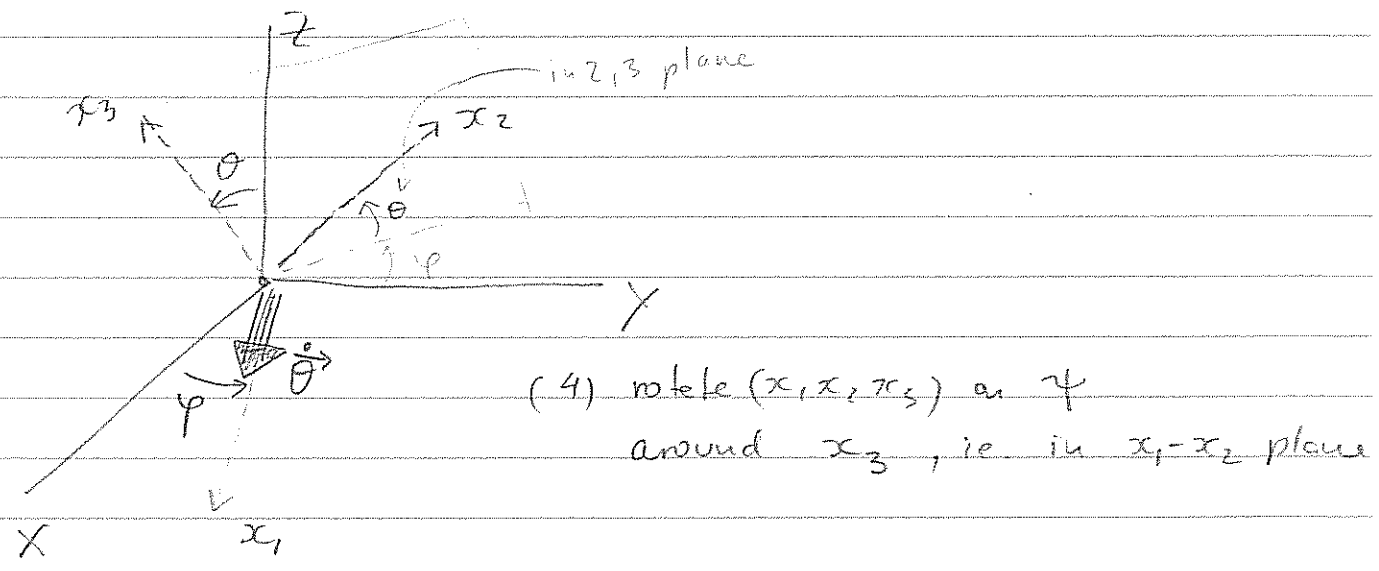 Z
in 2,3 plane
x3
x2
θ
θ
φ
Y
θ̇
φ
(4) rotate (x, x2 x3) an ψ
around x3, ie. in x1-x2 plane
X
x1